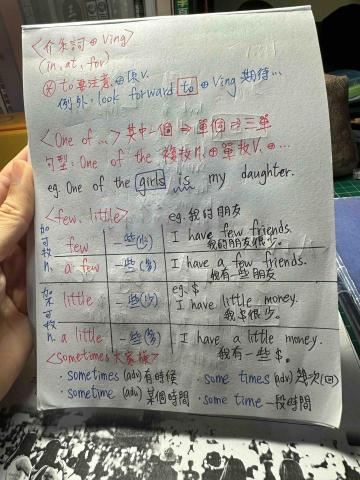 <介系詞⊕Ving>
(in, at, for)
※ to要注意⊕原V.
例外: look forward to ⊕ Ving 期待...
<One of ...> 其中一個⇒單個⇒三單
句型: One of the 複數n.⊕單數V.⊕...
eg. One of the girls is my daughter.
<few, little> eg. 我的朋友
加可數n. few 一些(少) I have few friends.
我的朋友很少。
a few 一些(多) I have a few friends.
我有一些朋友
eg. $
加不可數n. little 一些(少) I have little money.
我$很少。
a little 一些(多) I have a little money.
我有一些$。
<sometimes大家族>
· sometimes (adv) 有時候 · some times (adv) 幾次(回)
· sometime (adv) 某個時間 · some time 一段時間